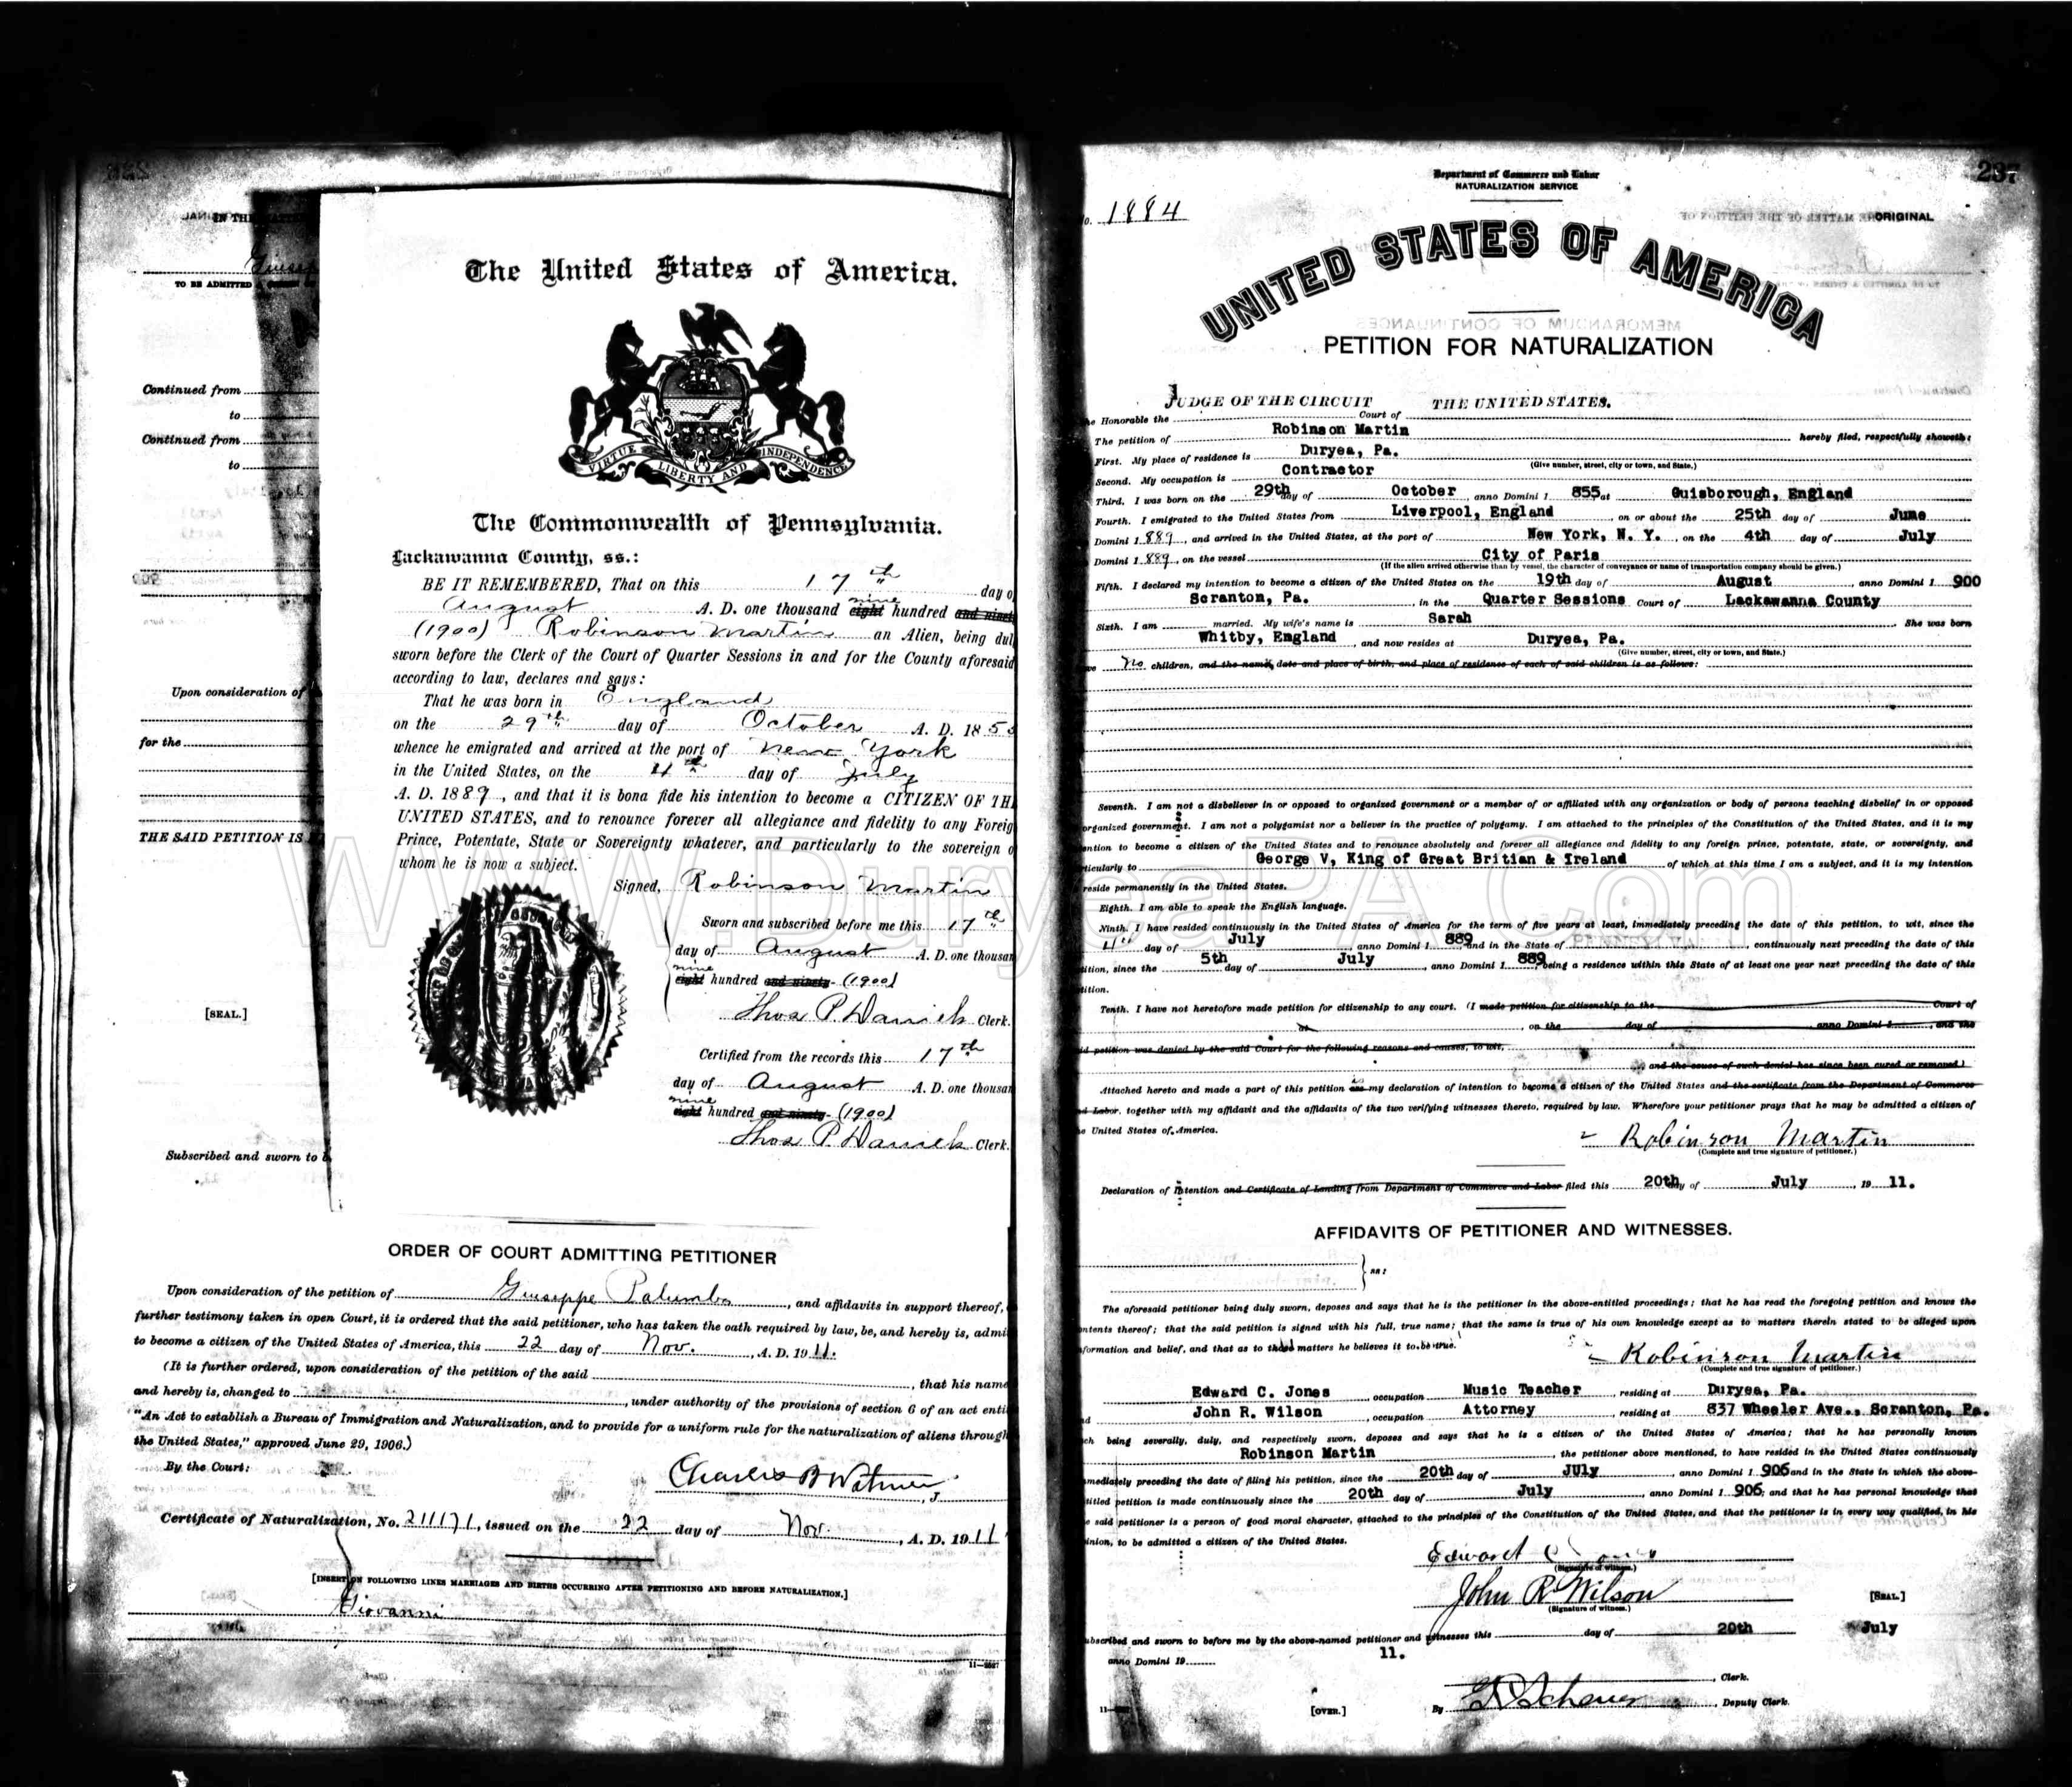 IN THE MATTER
Giusepp
TO BE ADMITTED A
Continued from
to
Continued from
to
Upon consideration of
for the
THE SAID PETITION IS
[SEAL.]
Subscribed and sworn to b
The United States of America.
VIRTUE LIBERTY AND INDEPENDENCE
The Commonwealth of Pennsylvania.
Lackawanna County, ss.:
BE IT REMEMBERED, That on this 17th day o
August A. D. one thousand eight nine hundred and ninety
(1900) Robinson Martin an Alien, being dul
sworn before the Clerk of the Court of Quarter Sessions in and for the County aforesaid
according to law, declares and says:
That he was born in England
on the 29th day of October A. D. 185
whence he emigrated and arrived at the port of New York
in the United States, on the 4th day of July
A. D. 1889, and that it is bona fide his intention to become a CITIZEN OF TH
UNITED STATES, and to renounce forever all allegiance and fidelity to any Foreig
Prince, Potentate, State or Sovereignty whatever, and particularly to the sovereign o
whom he is now a subject.
Signed, Robinson Martin
Sworn and subscribed before me this 17th
day of August A. D. one thousan
nine
eight hundred and ninety- (1900)
Thos P. Daniels Clerk.
Certified from the records this 17th
day of August A. D. one thousan
nine
eight hundred and ninety- (1900)
Thos P. Daniels Clerk.
ORDER OF COURT ADMITTING PETITIONER
Upon consideration of the petition of Giuseppe Palumbo, and affidavits in support thereof,
further testimony taken in open Court, it is ordered that the said petitioner, who has taken the oath required by law, be, and hereby is, admi
to become a citizen of the United States of America, this 22 day of Nov., A. D. 1911.
(It is further ordered, upon consideration of the petition of the said , that his name
and hereby is, changed to , under authority of the provisions of section 6 of an act enti
"An Act to establish a Bureau of Immigration and Naturalization, and to provide for a uniform rule for the naturalization of aliens through
the United States," approved June 29, 1906.)
By the Court:
Charles B Witmer, J.
Certificate of Naturalization, No. 211171, issued on the 22 day of Nov., A. D. 1911
[INSERT ON FOLLOWING LINES MARRIAGES AND BIRTHS OCCURRING AFTER PETITIONING AND BEFORE NATURALIZATION.]
Giovanni
237
Department of Commerce and Labor
NATURALIZATION SERVICE
No. 1884
ORIGINAL
UNITED STATES OF AMERICA
PETITION FOR NATURALIZATION
JUDGE OF THE CIRCUIT THE UNITED STATES.
e Honorable the Court of
The petition of Robinson Martin hereby filed, respectfully showeth:
First. My place of residence is Duryea, Pa.
(Give number, street, city or town, and State.)
Second. My occupation is Contractor
Third. I was born on the 29th day of October anno Domini 1 855 at Guisborough, England
Fourth. I emigrated to the United States from Liverpool, England, on or about the 25th day of June
Domini 1 889, and arrived in the United States, at the port of New York, N. Y., on the 4th day of July
Domini 1 889, on the vessel City of Paris
(If the alien arrived otherwise than by vessel, the character of conveyance or name of transportation company should be given.)
Fifth. I declared my intention to become a citizen of the United States on the 19th day of August anno Domini 1 900
Scranton, Pa., in the Quarter Sessions Court of Lackawanna County
Sixth. I am married. My wife's name is Sarah She was born
Whitby, England, and now resides at Duryea, Pa.
(Give number, street, city or town, and State.)
ve No children, and the name, date and place of birth, and place of residence of each of said children is as follows:
Seventh. I am not a disbeliever in or opposed to organized government or a member of or affiliated with any organization or body of persons teaching disbelief in or opposed
organized government. I am not a polygamist nor a believer in the practice of polygamy. I am attached to the principles of the Constitution of the United States, and it is my
ention to become a citizen of the United States and to renounce absolutely and forever all allegiance and fidelity to any foreign prince, potentate, state, or sovereignty, and
ticularly to George V, King of Great Britian & Ireland of which at this time I am a subject, and it is my intention
reside permanently in the United States.
Eighth. I am able to speak the English language.
Ninth. I have resided continuously in the United States of America for the term of five years at least, immediately preceding the date of this petition, to wit, since the
4th day of July anno Domini 1 889 and in the State of , continuously next preceding the date of this
tition, since the 5th day of July, anno Domini 1 889, being a residence within this State of at least one year next preceding the date of this
tition.
Tenth. I have not heretofore made petition for citizenship to any court. (I made petition for citizenship to the Court of
at , on the day of anno Domini 1 , and the
id petition was denied by the said Court for the following reasons and causes, to wit,
, and the cause of such denial has since been cured or removed.)
Attached hereto and made a part of this petition are is my declaration of intention to become a citizen of the United States and the certificate from the Department of Commerce
nd Labor. together with my affidavit and the affidavits of the two verifying witnesses thereto, required by law. Wherefore your petitioner prays that he may be admitted a citizen of
e United States of America.
Robinson Martin
(Complete and true signature of petitioner.)
Declaration of Intention and Certificate of Landing from Department of Commerce and Labor filed this 20th day of July, 19 11.
AFFIDAVITS OF PETITIONER AND WITNESSES.
ss:
The aforesaid petitioner being duly sworn, deposes and says that he is the petitioner in the above-entitled proceedings; that he has read the foregoing petition and knows the
ontents thereof; that the said petition is signed with his full, true name; that the same is true of his own knowledge except as to matters therein stated to be alleged upon
formation and belief, and that as to those matters he believes it to be true.
Robinson Martin
(Complete and true signature of petitioner.)
Edward C. Jones, occupation Music Teacher, residing at Duryea, Pa.
nd John R. Wilson, occupation Attorney, residing at 837 Wheeler Ave., Scranton, Pa.
ch being severally, duly, and respectively sworn, deposes and says that he is a citizen of the United States of America; that he has personally known
Robinson Martin, the petitioner above mentioned, to have resided in the United States continuously
mmediately preceding the date of filing his petition, since the 20th day of JUly, anno Domini 1 906 and in the State in which the above-
titled petition is made continuously since the 20th day of July anno Domini 1 906; and that he has personal knowledge that
e said petitioner is a person of good moral character, attached to the principles of the Constitution of the United States, and that the petitioner is in every way qualified, in his
inion, to be admitted a citizen of the United States.
Edward C Jones
(Signature of witness.)
John R. Wilson
(Signature of witness.)
[SEAL.]
ubscribed and sworn to before me by the above-named petitioner and witnesses this day of 20th July
anno Domini 19 11.
, Clerk.
[OVER.]
By , Deputy Clerk.
WWW.DuryeaPA.Com